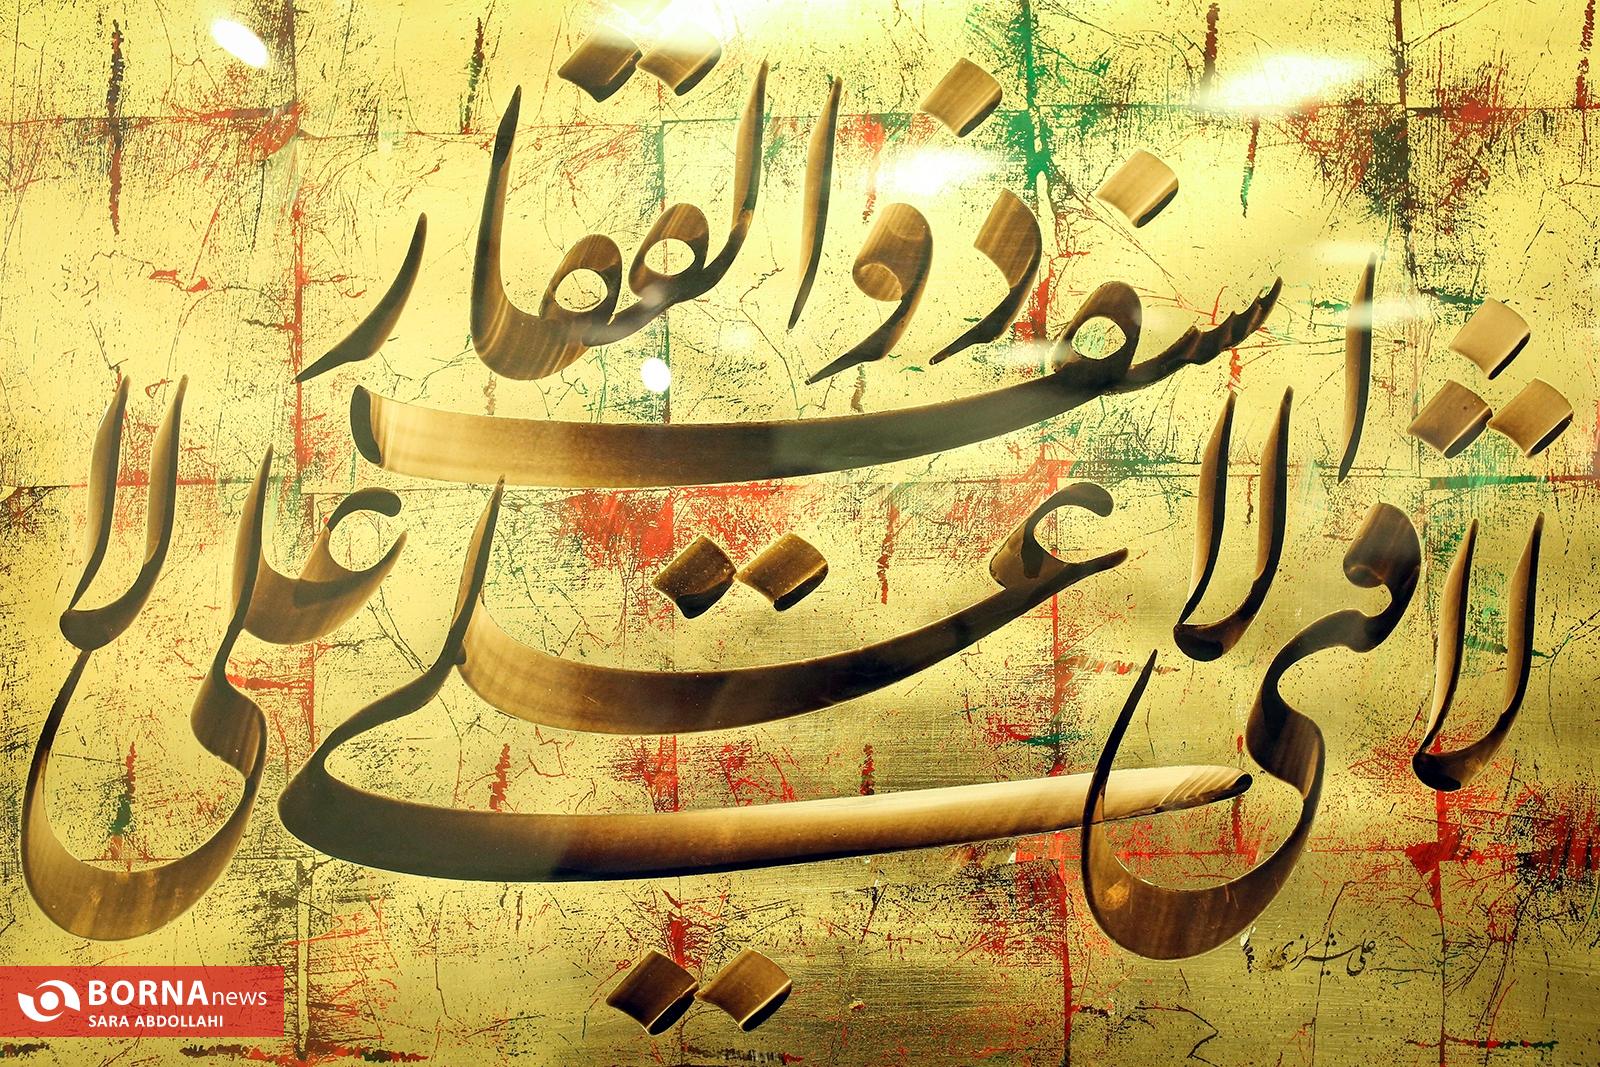 لا فتی الا علی لا سیف الا ذوالفقار
علی شیرازی
BORNA news
SARA ABDOLLAHI